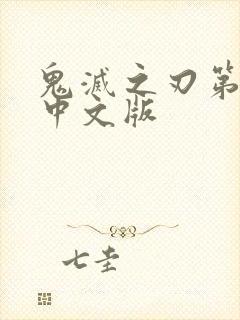 鬼滅之刃第
中文版
七圭